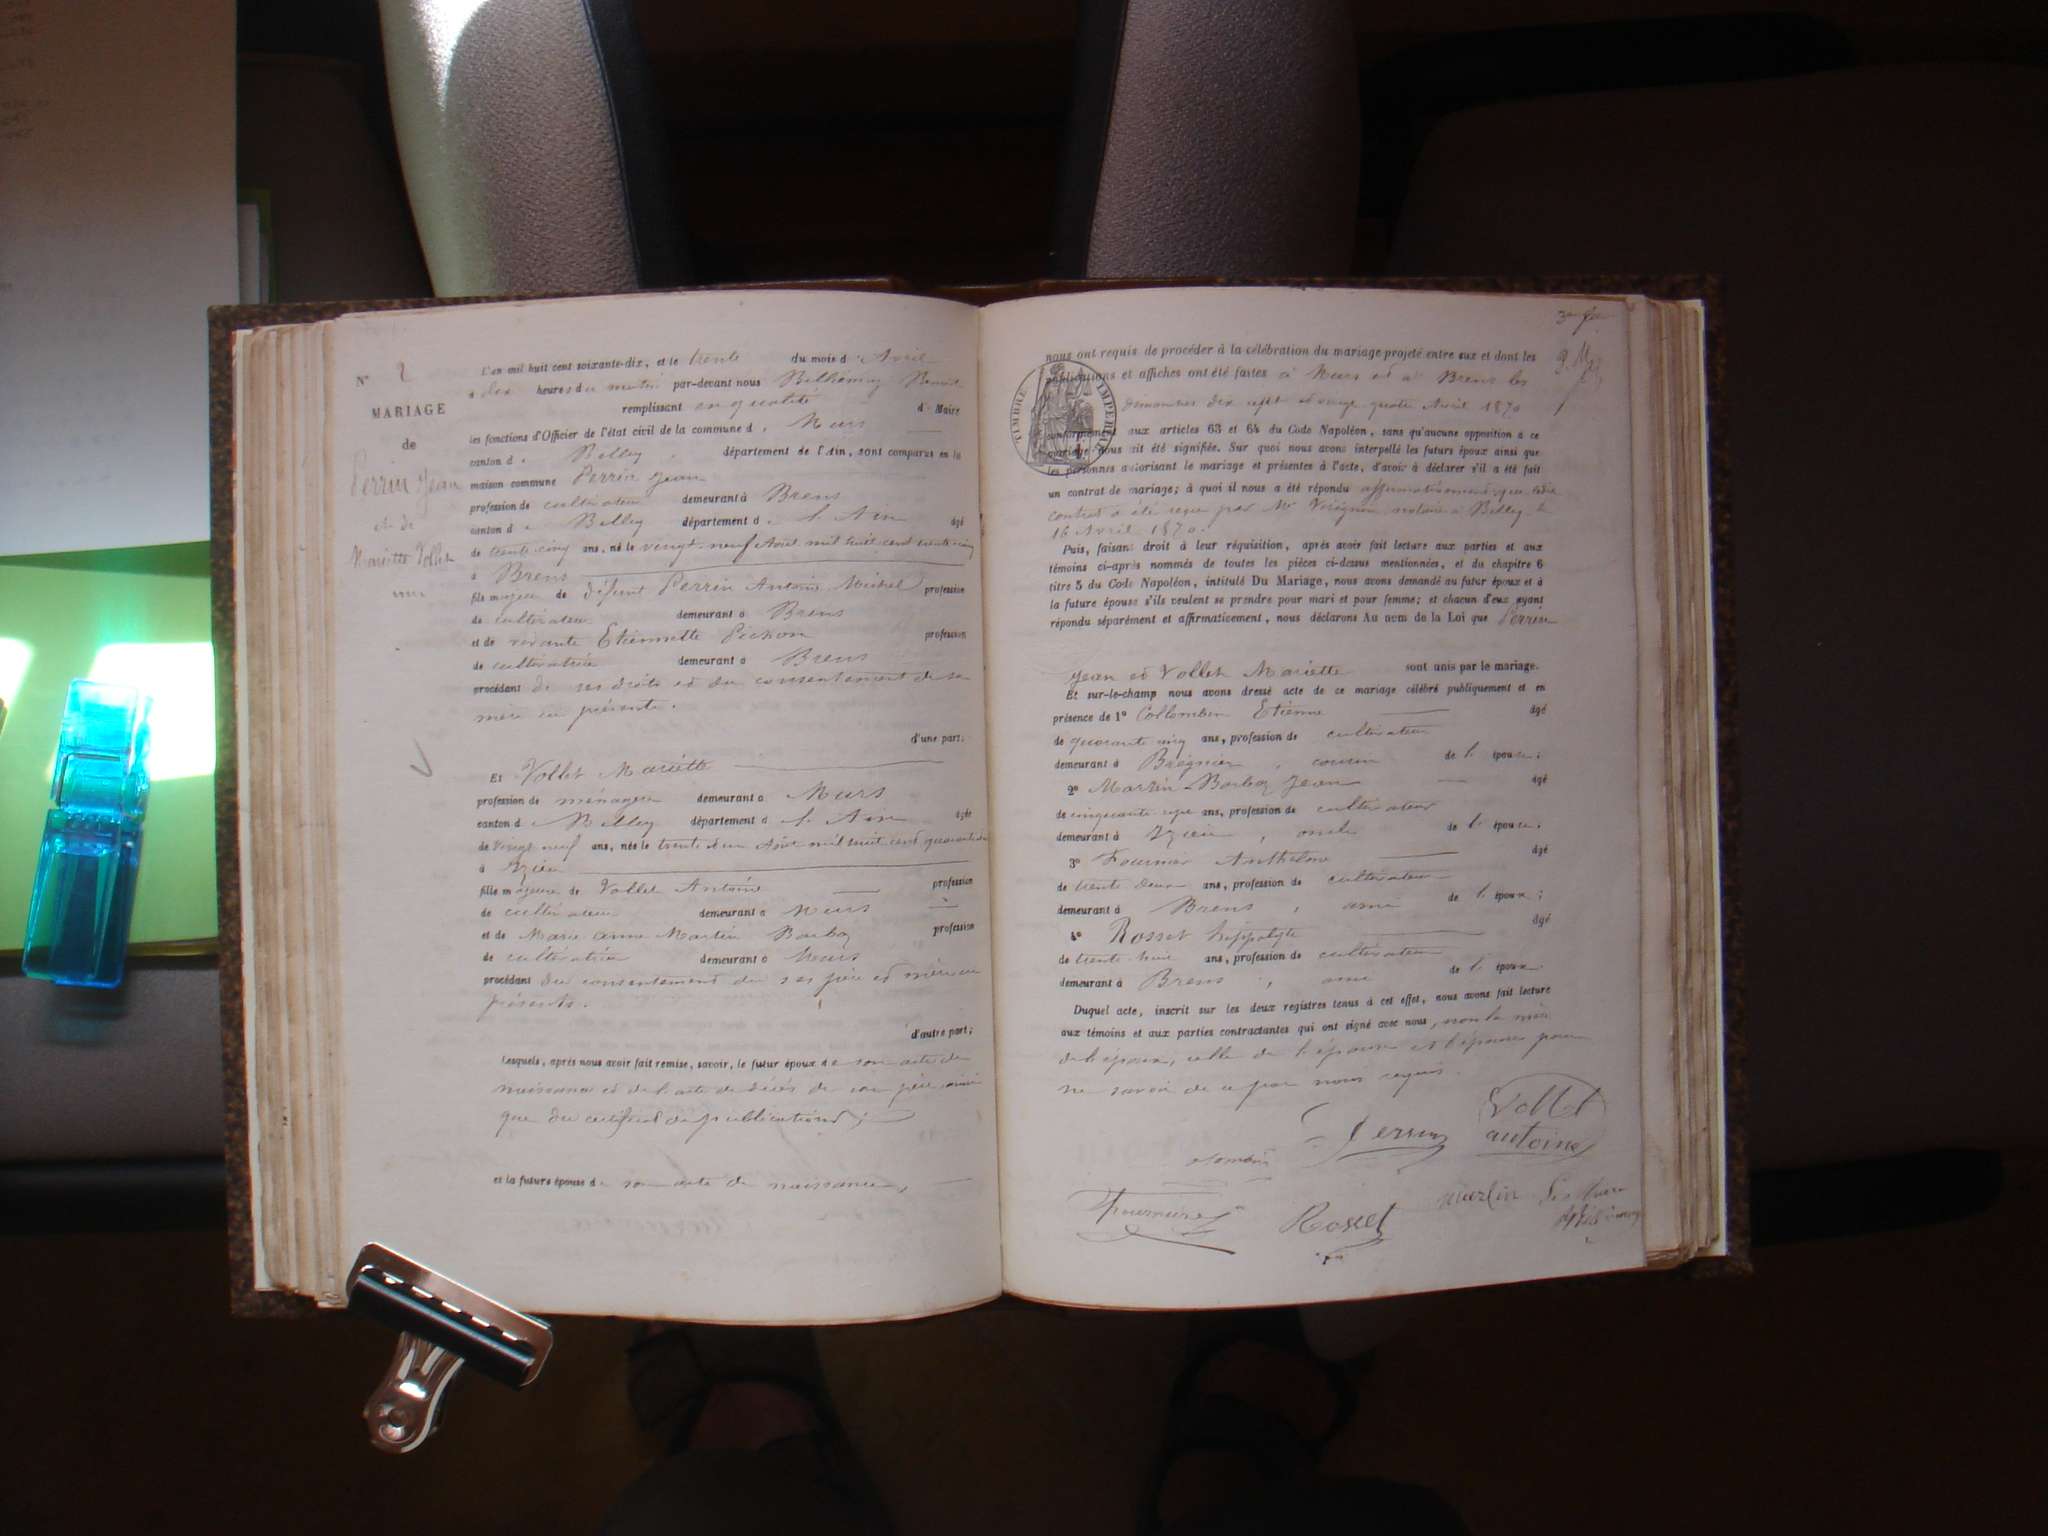 N° 2
MARIAGE
de
Perrin Jean
et de
Mariette Vollet
L'an mil huit cent soixante-dix, et le trente du mois d'Avril
à dix heures du matin par-devant nous Benoit
remplissant en qualité de Maire
les fonctions d'Officier de l'état civil de la commune de Murs
canton de Belley, département de l'Ain, sont comparus en la
maison commune Perrin Jean
profession de cultivateur demeurant à Brens
canton de Belley département de l'Ain âgé
de trente cinq ans, né le vingt-neuf Avril mil huit cent trente cinq
à Brens
fils majeur de défunt Perrin Antoine Michel profession
de cultivateur demeurant à Brens
et de vivante Etiennette Pichon profession
de cultivatrice demeurant à Brens
procédant de ses droits et du consentement de sa
mère ici présente.
d'une part;
Et Vollet Mariette
profession de ménagère demeurant à Murs
canton de Belley département de l'Ain âgée
de vingt neuf ans, née le trente et un Août mil huit cent quarante
à Izieu
fille majeure de Vollet Antoine profession
de cultivateur demeurant à Murs
et de Marie Anne Martin Barbaz profession
de cultivatrice demeurant à Murs
procédant du consentement de ses père et mère ici
présents.
d'autre part;
Lesquels, après nous avoir fait remise, savoir, le futur époux de son acte de
naissance et de l'acte de décès de son père ainsi
que du certificat de publications;
et la future épouse de son acte de naissance,
nous ont requis de procéder à la célébration du mariage projeté entre eux et dont les
publications et affiches ont été faites à Murs et à Brens les
dimanches dix sept et vingt quatre Avril 1870
conformément aux articles 63 et 64 du Code Napoléon, sans qu'aucune opposition à ce
mariage nous ait été signifiée. Sur quoi nous avons interpellé les futurs époux ainsi que
les personnes autorisant le mariage et présentes à l'acte, d'avoir à déclarer s'il a été fait
un contrat de mariage; à quoi il nous a été répondu affirmativement que ledit
contrat a été reçu par Me notaire à Belley le
16 Avril 1870.
TIMBRE IMPERIAL
Puis, faisant droit à leur réquisition, après avoir fait lecture aux parties et aux
témoins ci-après nommés de toutes les pièces ci-dessus mentionnées, et du chapitre 6
titre 5 du Code Napoléon, intitulé Du Mariage, nous avons demandé au futur époux et à
la future épouse s'ils veulent se prendre pour mari et pour femme; et chacun d'eux ayant
répondu séparément et affirmativement, nous déclarons Au nom de la Loi que Perrin
Jean et Vollet Mariette sont unis par le mariage.
Et sur-le-champ nous avons dressé acte de ce mariage célébré publiquement et en
présence de 1° Collomb Etienne âgé
de quarante cinq ans, profession de cultivateur
demeurant à Brégnier, cousin de l'épouse;
2° Martin Barbaz Jean âgé
de cinquante sept ans, profession de cultivateur
demeurant à Izieu, oncle de l'épouse;
3° Fournier Anthelme âgé
de trente deux ans, profession de cultivateur
demeurant à Brens, ami de l'époux;
4° Rosset hippolyte âgé
de trente huit ans, profession de cultivateur
demeurant à Brens, ami de l'époux.
Duquel acte, inscrit sur les deux registres tenus à cet effet, nous avons fait lecture
aux témoins et aux parties contractantes qui ont signé avec nous, non la mère
de l'époux, celle de l'épouse et l'épouse pour
ne savoir de ce par nous requis.
Perrin
Vollet
antoine
Rosset
martin